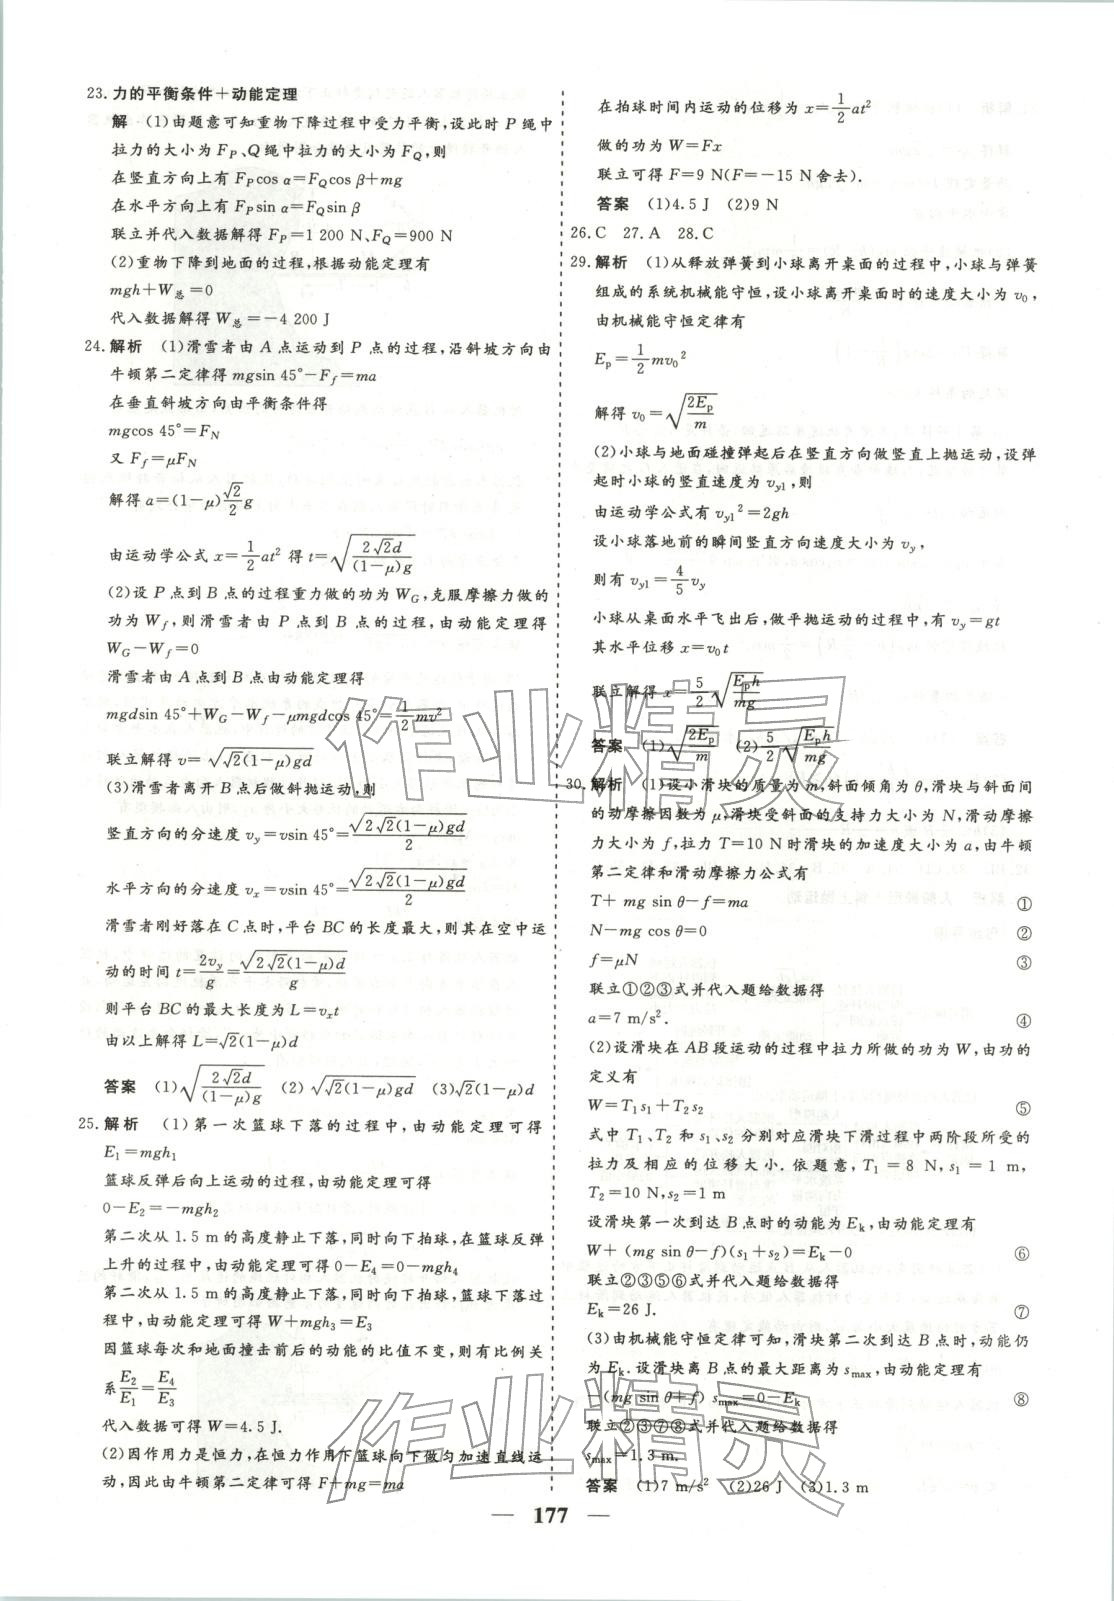 23.力的平衡条件＋动能定理
解 (1)由题意可知重物下降过程中受力平衡,设此时 P 绳中
拉力的大小为 F_P、Q 绳中拉力的大小为 F_Q,则
在竖直方向上有 F_P cos α=F_Q cos β+mg
在水平方向有 F_P sin α=F_Q sin β
联立并代入数据解得 F_P=1 200 N、F_Q=900 N
(2)重物下降到地面的过程,根据动能定理有
mgh+W总=0
代入数据解得 W总=-4 200 J
24.解析 (1)滑雪者由 A 点运动到 P 点的过程,沿斜坡方向由
牛顿第二定律得 mgsin 45°-F_f=ma
在垂直斜坡方向由平衡条件得
mgcos 45°=F_N
又 F_f=μF_N
解得 a=(1-μ)√2/2 g
由运动学公式 x=1/2 at² 得 t=√(2√2d/((1-μ)g))
(2)设 P 点到 B 点的过程重力做的功为 W_G,克服摩擦力做的
功为 W_f,则滑雪者由 P 点到 B 点的过程,由动能定理得
W_G-W_f=0
滑雪者由 A 点到 B 点由动能定理得
mgdsin 45°+W_G-W_f-μmgdcos 45°=1/2 mv²
联立解得 v=√(√2(1-μ)gd)
(3)滑雪者离开 B 点后做斜抛运动,则
竖直方向的分速度 v_y=vsin 45°=√(2√2(1-μ)gd)/2
水平方向的分速度 v_x=vsin 45°=√(2√2(1-μ)gd)/2
滑雪者刚好落在 C 点时,平台 BC 的长度最大,则其在空中运
动的时间 t=2v_y/g=√(2√2(1-μ)d)/g
则平台 BC 的最大长度为 L=v_x t
由以上解得 L=√2(1-μ)d
答案 (1)√(2√2d/((1-μ)g)) (2)√(√2(1-μ)gd) (3)√2(1-μ)d
25.解析 (1)第一次篮球下落的过程中,由动能定理可得
E₁=mgh₁
篮球反弹后向上运动的过程,由动能定理可得
0-E₂=-mgh₂
第二次从 1.5 m的高度静止下落,同时向下拍球,在篮球反弹
上升的过程中,由动能定理可得 0-E₄=0-mgh₄
第二次从 1.5 m的高度静止下落,同时向下拍球,篮球下落过
程中,由动能定理可得 W+mgh₃=E₃
因篮球每次和地面撞击前后的动能的比值不变,则有比例关
系 E₂/E₁=E₄/E₃
代入数据可得 W=4.5 J.
(2)因作用力是恒力,在恒力作用下篮球向下做匀加速直线运
动,因此由牛顿第二定律可得 F+mg=ma
在拍球时间内运动的位移为 x=1/2 at²
做的功为 W=Fx
联立可得 F=9 N(F=-15 N 舍去).
答案 (1)4.5 J (2)9 N
26.C 27.A 28.C
29.解析 (1)从释放弹簧到小球离开桌面的过程中,小球与弹簧
组成的系统机械能守恒,设小球离开桌面时的速度大小为 v₀,
由机械能守恒定律有
E_p=1/2 mv₀²
解得 v₀=√(2E_p/m)
(2)小球与地面碰撞弹起后在竖直方向做竖直上抛运动,设弹
起时小球的竖直速度为 v_y1,则
由运动学公式有 v_y1²=2gh
设小球落地前的瞬间竖直方向速度大小为 v_y,
则有 v_y1=4/5 v_y
小球从桌面水平飞出后,做平抛运动的过程中,有 v_y=gt
其水平位移 x=v₀t
联立解得 x=5/2 √(E_p h/mg)
答案 (1)√(2E_p/m) (2)5/2 √(E_p h/mg)
30.解析 (1)设小滑块的质量为 m,斜面倾角为 θ,滑块与斜面间
的动摩擦因数为 μ,滑块受斜面的支持力大小为 N,滑动摩擦
力大小为 f,拉力 T=10 N时滑块的加速度大小为 a,由牛顿
第二定律和滑动摩擦力公式有
T+ mg sin θ-f=ma ①
N-mg cos θ=0 ②
f=μN ③
联立①②③式并代入题给数据得
a=7 m/s². ④
(2)设滑块在 AB 段运动的过程中拉力所做的功为 W,由功的
定义有
W=T₁s₁+T₂s₂ ⑤
式中 T₁、T₂ 和 s₁、s₂ 分别对应滑块下滑过程中两阶段所受的
拉力及相应的位移大小.依题意,T₁=8 N,s₁=1 m,
T₂=10 N,s₂=1 m
设滑块第一次到达 B 点时的动能为 E_k,由动能定理有
W+ (mg sin θ-f)(s₁+s₂)=E_k-0 ⑥
联立②③⑤⑥式并代入题给数据得
E_k=26 J. ⑦
(3)由机械能守恒定律可知,滑块第二次到达 B 点时,动能仍
为 E_k.设滑块离 B 点的最大距离为 s_max,由动能定理有
-(mg sin θ+f) s_max=0-E_k ⑧
联立②③⑦⑧式并代入题给数据得
s_max=1.3 m.
答案 (1)7 m/s² (2)26 J (3)1.3 m
— 177 —
作业精灵
作业精灵